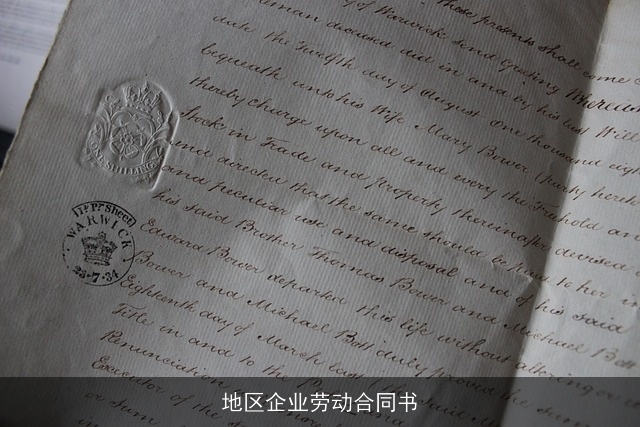 of Warwick send Greeting Whereas
date the Twelfth day of August One thousand eigh
bequeath unto his Wife Mary Bower (party here
thereby charge upon all and every the Freehold an
Stock in Trade and property thereinafter devised
and directed that the same should be paid to her
and peculiar use and disposal and of his said
his said Brother Thomas Bower and Michael Bott
Edward Bower departed this life without altering or
Bower and Michael Bott duly proved the same
Eighteenth day of March last
Title in and to the
Renunciation
Executor of the
or Sum
ONE SHILLING
Pr Sheet
WARWICK
23·7·34
地区企业劳动合同书